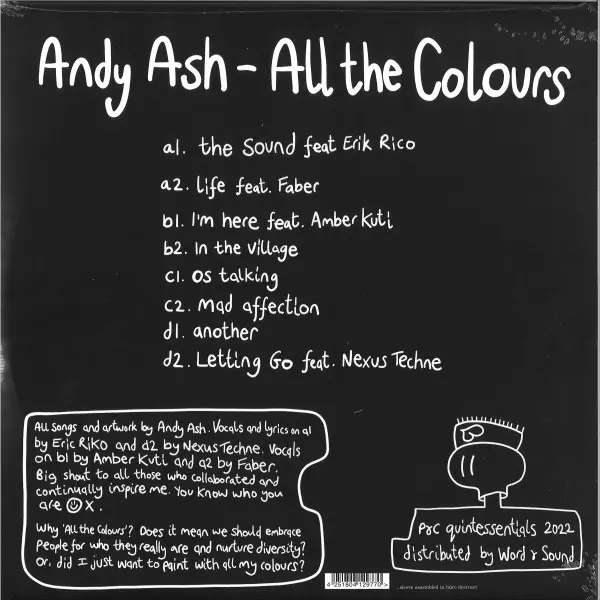 Andy Ash - All the Colours
a1. the Sound feat Erik Rico
a2. Life feat. Faber
b1. I'm here feat. Amber Kuti
b2. In the village
c1. os talking
c2. mad affection
d1. another
d2. Letting Go feat. Nexus Techne
All songs and artwork by Andy Ash. Vocals and lyrics on a1
by Eric Riko and d2 by Nexus Techne. Vocals
on b1 by Amber Kuti and a2 by Faber.
Big shout to all those who collaborated and
continually inspire me. You know who you
are ☺ X.
Why 'All the Colours'? Does it mean we should embrace
People for who they really are and nurture diversity?
Or, did I just want to paint with all my colours?
quintessentials 2022
distributed by Word & Sound
4 251804 129770 >